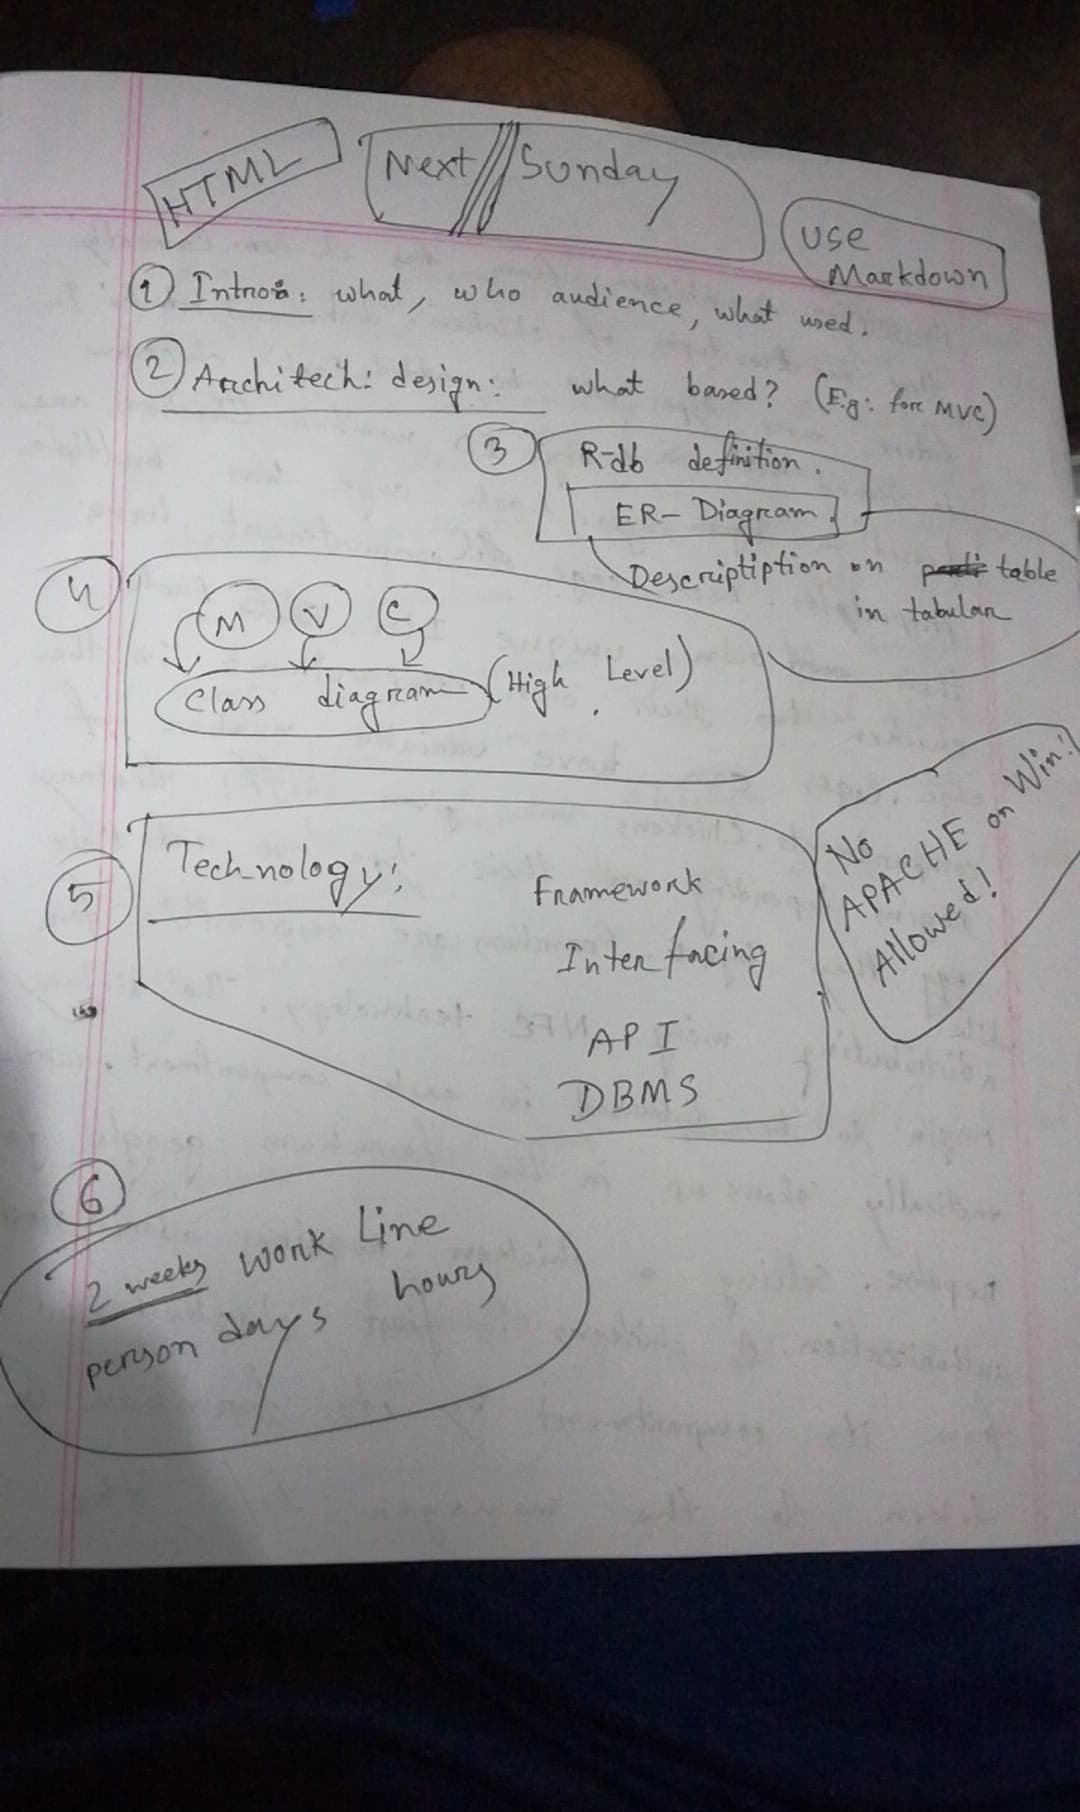 HTML
Next Sunday
Use
Markdown
1 Intro: what, who audience, what used.
2 Architech: design: what based? (E.g: for MVC)
3 R-db definition.
ER- Diagram.
Descriptiption on table
in tabular
4
M V C
Class diagram (High Level)
5 Technology:
Framework
Interfacing
API
DBMS
No
APACHE on Win!
Allowed!
6
2 weeks work Line
person days hours